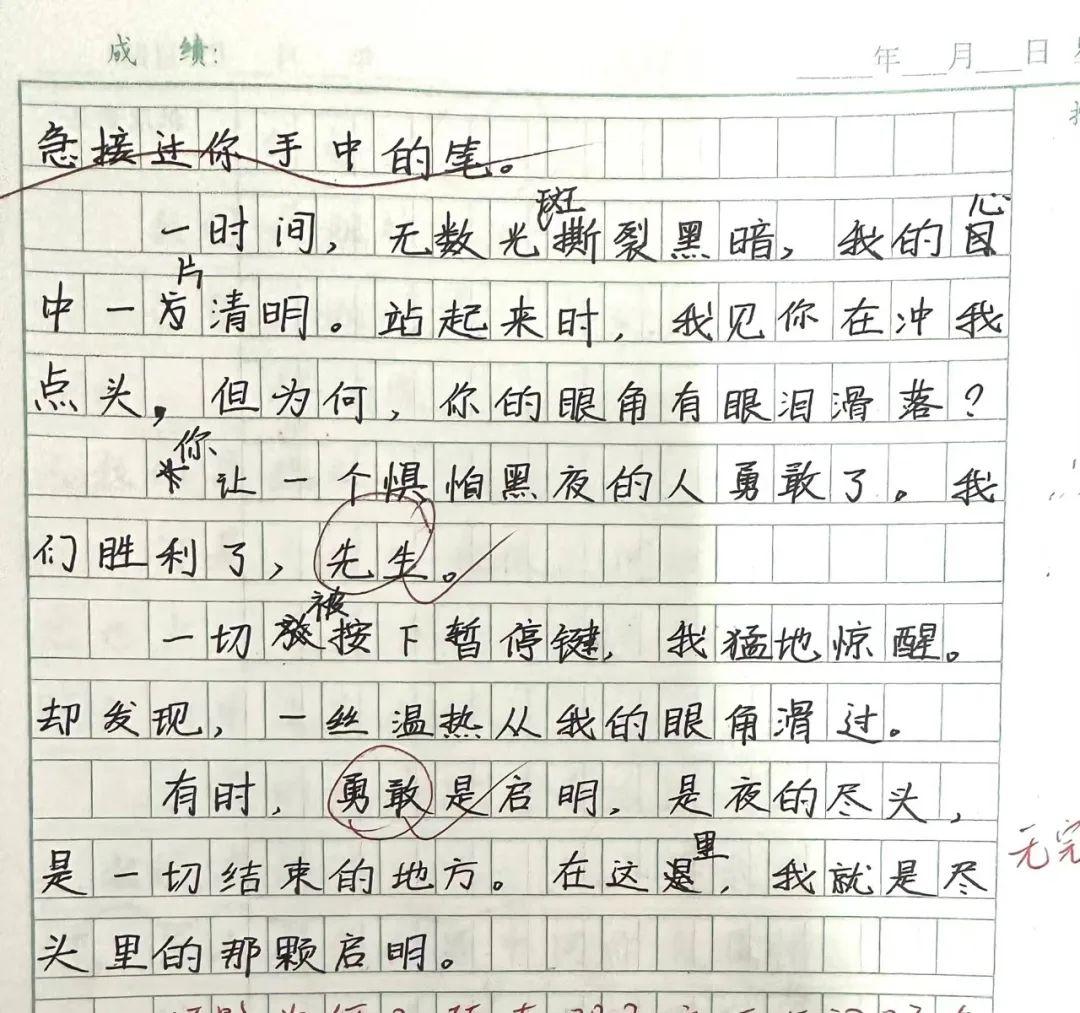 成 绩:
年 月 日
急接过你手中的笔。
一时间，无数光斑撕裂黑暗，我的心
中一片清明。站起来时，我见你在冲我
点头，但为何，你的眼角有眼泪滑落？
你让一个惧怕黑夜的人勇敢了。我
们胜利了，先生。
一切被按下暂停键，我猛地惊醒。
却发现，一丝温热从我的眼角滑过。
有时，勇敢是启明，是夜的尽头，
是一切结束的地方。在这里，我就是尽
头里的那颗启明。
无完